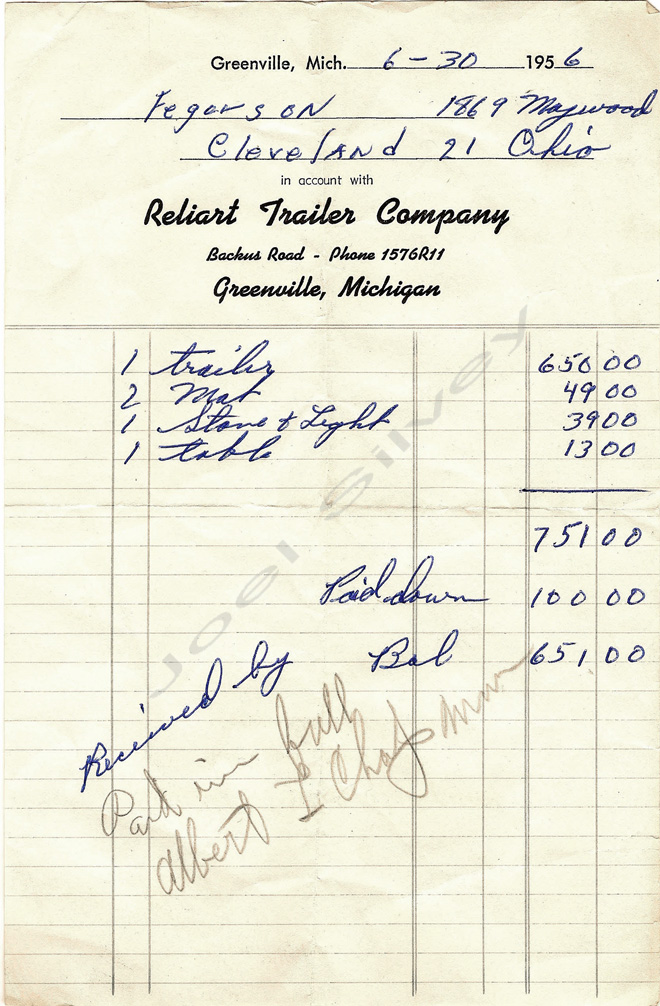 Greenville, Mich. 6-30 1956
Fegarson 1869 Maywood
Cleveland 21 Ohio
in account with
Reliart Trailer Company
Backus Road - Phone 1576R11
Greenville, Michigan
1 trailer 650 00
2 Mat 49 00
1 Stove & Light 39 00
1 table 13 00
751 00
Paid down 100 00
Bal 651.00
Received by
Paid in full
Albert L Chapman
Joel Silvey